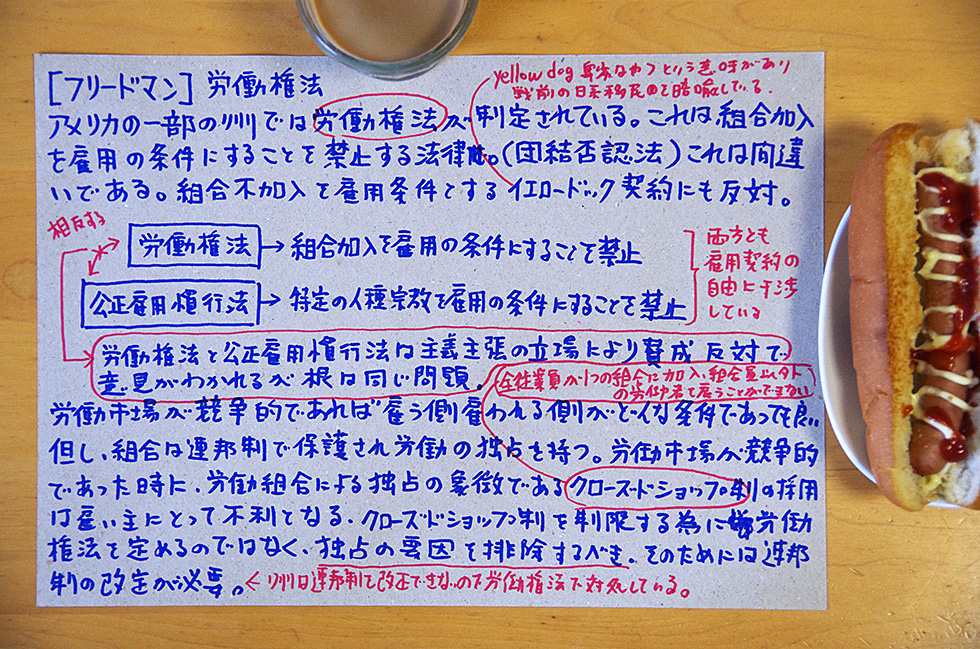 [フリードマン] 労働権法
yellow dog 卑劣なやつという意味があり
戦前の日系移民のを暗喩している.
アメリカの一部の州では労働権法が制定されている。これは組合加入
を雇用の条件にすることを禁止する法律。(団結否認法)これは間違
いである。組合不加入を雇用条件とするイエロードック契約にも反対。
相反する
労働権法→組合加入を雇用の条件にすることを禁止
公正雇用慣行法→特定の人種宗教を雇用の条件にすることを禁止
両方とも
雇用契約の
自由に干渉
している
労働権法と公正雇用慣行法は主義主張の立場により賛成反対で
意見がわかれるが根は同じ問題.
全従業員が1つの組合に加入、組合員以外
の労働者を雇うことができない
労働市場が競争的であれば雇う側雇われる側がどんな条件であっても良い
但し、組合は連邦制で保護され労働の独占を持つ。労働市場が競争的
であった時に、労働組合による独占の象徴であるクローズドショップ制の採用
は雇い主にとって不利となる、クローズドショップ制を制限する為に労働
権法を定めるのではなく、独占の要因を排除するべき、そのためには連邦
制の改定が必要。←州は連邦制を改正できないので労働権法で対処している。